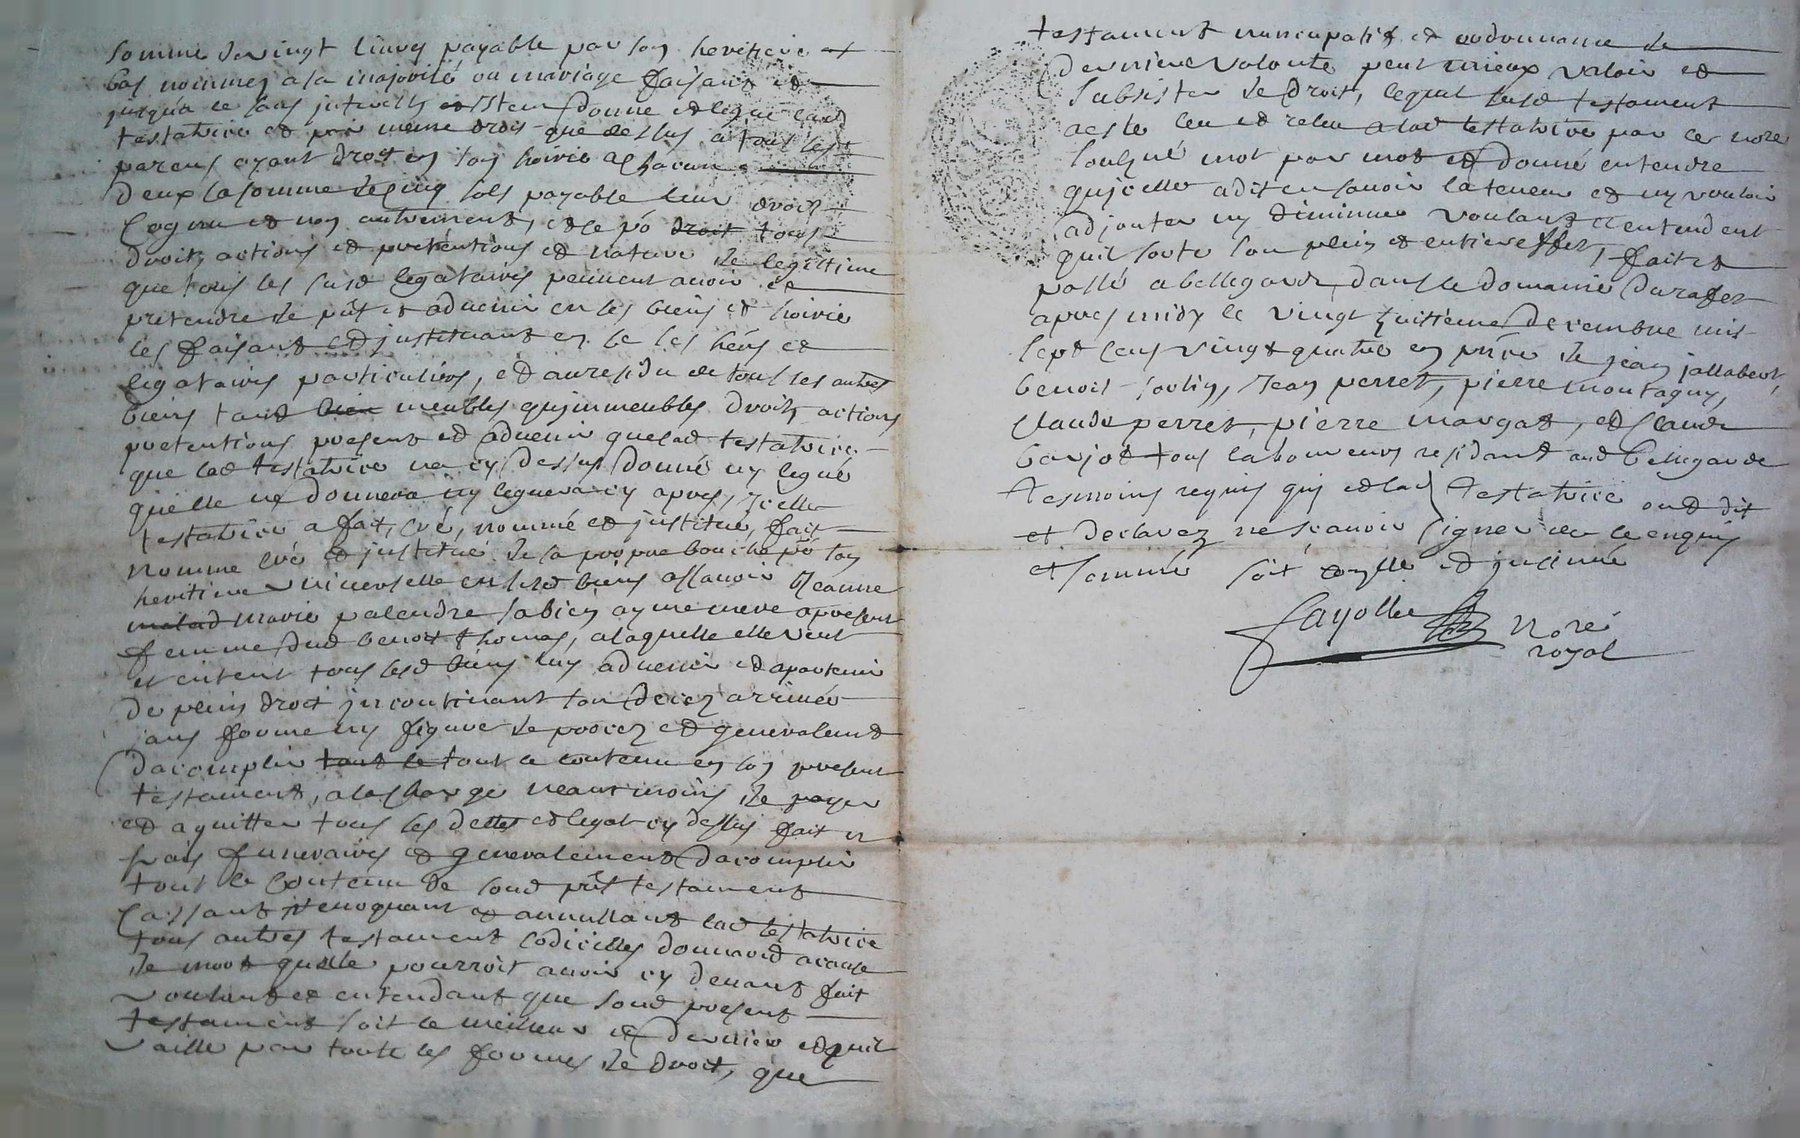 somme de vingt livres payable par son heritiere
bas nommez a sa majorité ou mariage faisant et
jusqua ce sans interests et Item donne et legue lad
testatrice et par meme droit que dessus a tous les
parens ayant droit en son hoirie a chacun
deux la somme de cinq sols payable leur droit
cognu et non autrement, et ce po droit tous
droits actions et pretentions et nature de legitime
que tous les susd legataires peuvent avoir et
pretendre de pnt et advenir en ses biens et hoirie
les faisant et instituant en ce ses hers et
legataires particuliers, et au residu de tout ses autres
biens tant bien meubles qu immeubles droits actions
pretentions present et advenir que lad testatrice
que lad testatrice na cy dessus donné ny legué
quelle ne donnera ny leguera cy apres, icelle
testatrice a fait, créé, nommé et institué, fait
nomme créé et institue de sa propre bouche po son
heritiere universelle en sesd biens assavoir Jeanne
marie palendre sa bien aymé mere a present
femme dud benoit thomas, a laquelle elle veut
et entent tous sesd biens luy advenir et apartenir
de plein droit incontinant son decez arrivée
sans forme ny figure de procez et generalement
dacomplir tout le tout le contenu en son present
testament, a la charge neantmoins de payer
et aquitter tous les dettes et legat cy dessus fait et
frais funeraires et generalement dacomplir
tout le contenu de sond pnt testament
Cassant revoquant et annullant lad testatrice
tous autres testament codicilles donnaod a cause
de mort quelle pourroit avoir cy devant fait
voulant et entendant que sond present
testament soit le meilleur et dernier et quil
vaille par toute les formes de droit, que
testament nuncupatif et ordonnance de
derniere volonte peut mieux valoir et
subsister de droit, lequel susd testament
a este leu et releu a lad testatrice par ce nore
soussné mot par mot et donné entendre
quicelle a dit en scavoir la teneur et ny vouloir
adjouter ny diminuer voulant et entendent
quil sorte son plein et entier effet, fait et
passé a bellegarde, dans le domaine
apres midy le vingt huitieme decembre mil
sept cens vingt quatre en pnce de jean jallabert,
benoit, Jean perret, pierre montagny,
Claude perret, pierre margat, et Claude
barjot tous laboureurs residant aud bellegarde
tesmoins requis qui et lad testatrice ont dit
et declarez ne scavoir signer de ce enquis
et sommé soit et insinué
fayolle Noré
royal